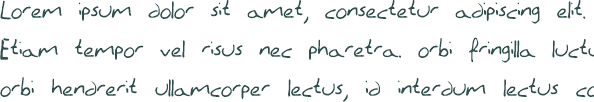 Lorem ipsum dolor sit amet, consectetur adipiscing elit.
Etiam tempor vel risus nec pharetra. orbi fringilla luctu
orbi hendrerit ullamcorper lectus, id interdum lectus co